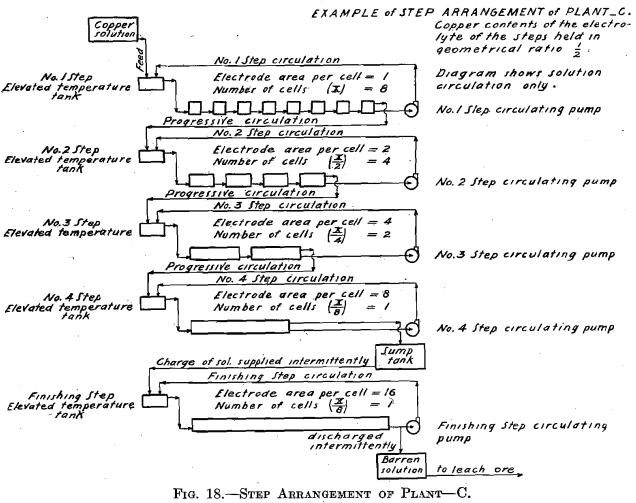 EXAMPLE of STEP ARRANGEMENT of PLANT_C.
Copper contents of the electro-
lyte of the steps held in
geometrical ratio 1/2.
Diagram shows solution
circulation only.
Copper
solution
Feed
No. 1 Step circulation
No. 1 Step
Elevated temperature
tank
Electrode area per cell = 1
Number of cells (x) = 8
No. 1 Step circulating pump
Progressive circulation
No. 2 Step circulation
No. 2 Step
Elevated temperature
tank
Electrode area per cell = 2
Number of cells (x/2) = 4
No. 2 Step circulating pump
Progressive circulation
No. 3 Step circulation
No. 3 Step
Elevated temperature
Electrode area per cell = 4
Number of cells (x/4) = 2
No. 3 Step circulating pump
Progressive circulation
No. 4 Step circulation
No. 4 Step
Elevated temperature
tank
Electrode area per cell = 8
Number of cells (x/8) = 1
No. 4 Step circulating pump
Sump
tank
Charge of sol. supplied intermittently
Finishing Step circulation
Finishing Step
Elevated temperature
tank
Electrode area per cell = 16
Number of cells (x/8) = 1
Finishing Step circulating
pump
discharged
intermittently
Barren
solution
to leach ore
FIG. 18.—STEP ARRANGEMENT OF PLANT—C.